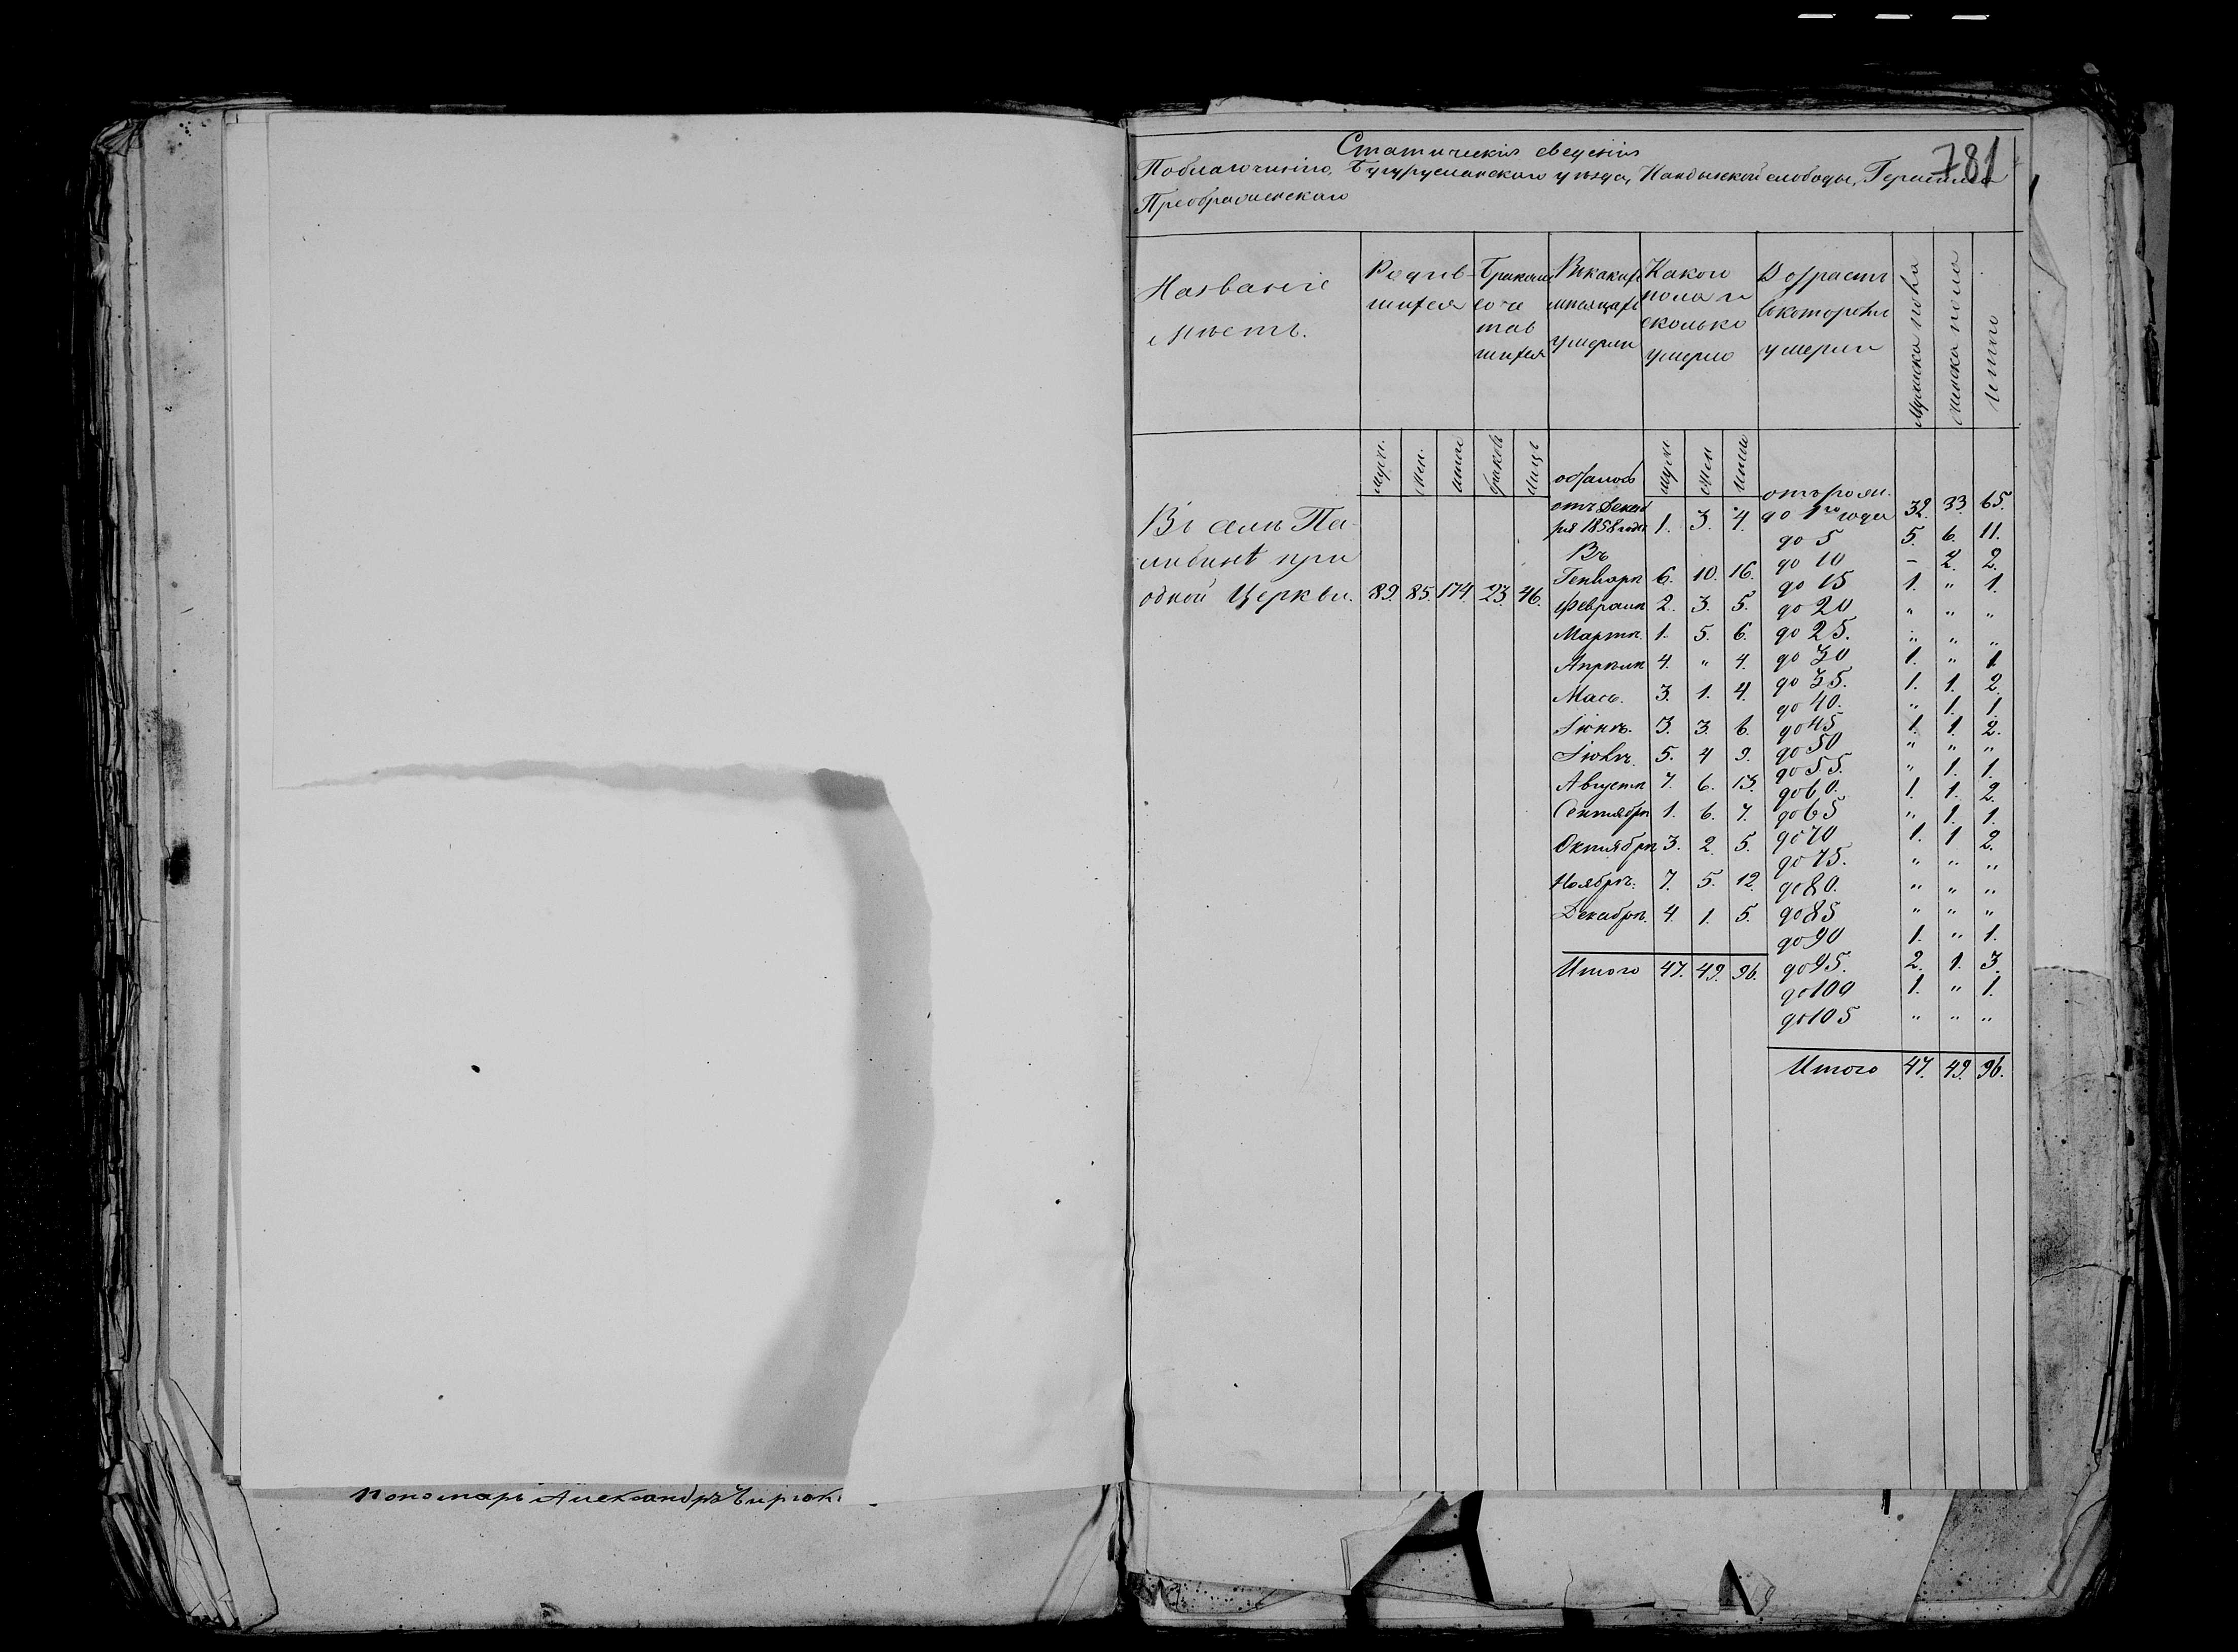 781
Статическія сведенія
По благочинію, Бугурусланскаго уѣзда, Кандызской слободы, Герасима
Преображенскаго
Названіе мѣстъ.
Родив-шихся
Бракомъ соче тав шихся
Въ какихъ мѣсяцахъ умерли
Какого пола и сколько умерло
Возрастъ въ которомъ умерли
Мужеска пола
Женска пола
Итого
муж. жен. итого браковъ лицъ
муж жен итого
Въ селѣ Па-
либинѣ при
одной Церкви. 89. 85. 174. 23. 46.
осталось
отъ Декаб
ря 1858 года 1. 3. 4.
Въ
Генварѣ 6. 10. 16.
Февралѣ 2. 3. 5.
Мартѣ. 1. 5. 6.
Апрѣлѣ 4. " 4.
Маѣ. 3. 1. 4.
Іюнѣ. 3. 3. 6.
Іюлѣ. 5. 4 9.
Августѣ 7. 6. 13.
Сентябрѣ 1. 6. 7.
Октябрѣ 3. 2. 5.
Ноябрѣ. 7. 5. 12.
Декабрѣ. 4. 1. 5.
Итого 47. 49. 96.
отъ рожд.
до 1го года 32. 33. 65.
до 5 5. 6. 11.
до 10 – 2. 2.
до 15 1. " 1.
до 20 " " "
до 25. " " "
до 30 1. " 1
до 35. 1. 1. 2.
до 40. " 1. 1.
до 45 1. 1. 2.
до 50 " " "
до 55. " 1. 1.
до 60. 1. 1. 2.
до 65 " 1. 1.
до 70 1. 1 2.
до 75. " " "
до 80. " " "
до 85 " " "
до 90 1. " 1.
до 95. 2. 1. 3.
до 100 1. " 1.
до 105 " " "
Итого 47. 49. 96.
Пономарь Александръ